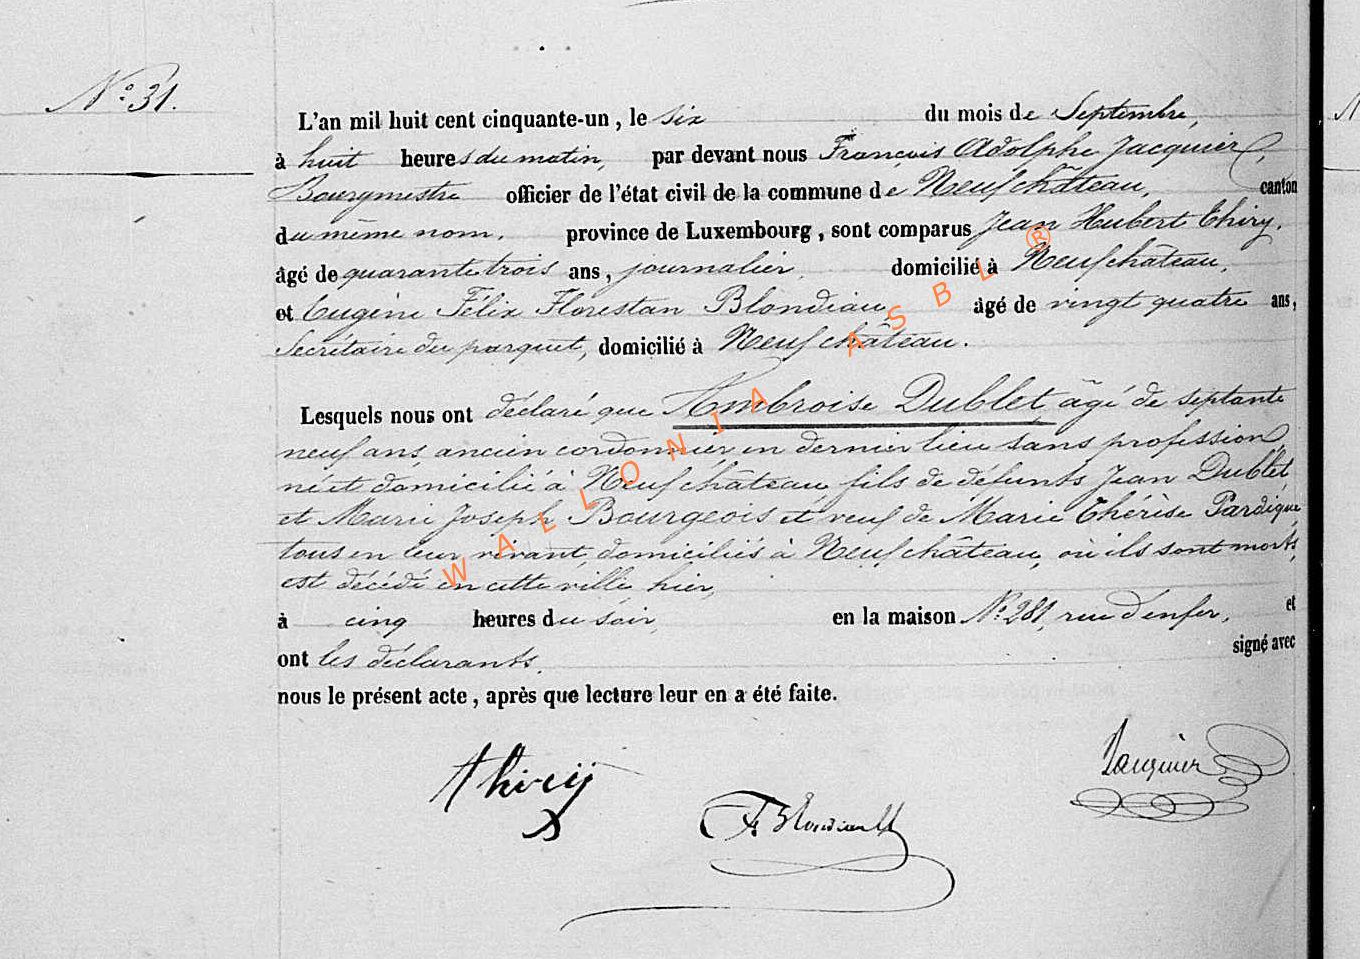 N.° 31.
L'an mil huit cent cinquante-un, le six du mois de Septembre,
à huit heures du matin, par devant nous François Adolphe Jacquier,
Bourgmestre officier de l'état civil de la commune de Neufchâteau, canton
du même nom, province de Luxembourg, sont comparus Jean Hubert Thiry,
âgé de quarante trois ans, journalier, domicilié à Neufchâteau,
et Eugène Félix Florestan Blondiau, âgé de vingt quatre ans,
Secrétaire du parquet, domicilié à Neufchâteau.
Lesquels nous ont déclaré que Ambroise Dublet, âgé de septante
neuf ans, ancien cordonnier en dernier lieu sans profession,
né et domicilié à Neufchâteau, fils de défunts Jean Dublet
et Marie Joseph Bourgeois et veuf de Marie Thérèse Pardique,
tous en leur vivant, domiciliés à Neufchâteau, où ils sont morts,
est décédé en cette ville hier,
à cinq heures du soir, en la maison N.° 281, rue d'enfer, et
ont les déclarants, signé avec
nous le présent acte, après que lecture leur en a été faite.
Thirij
Jacquier
F. Blondiau
WALLONIA ASBL ®